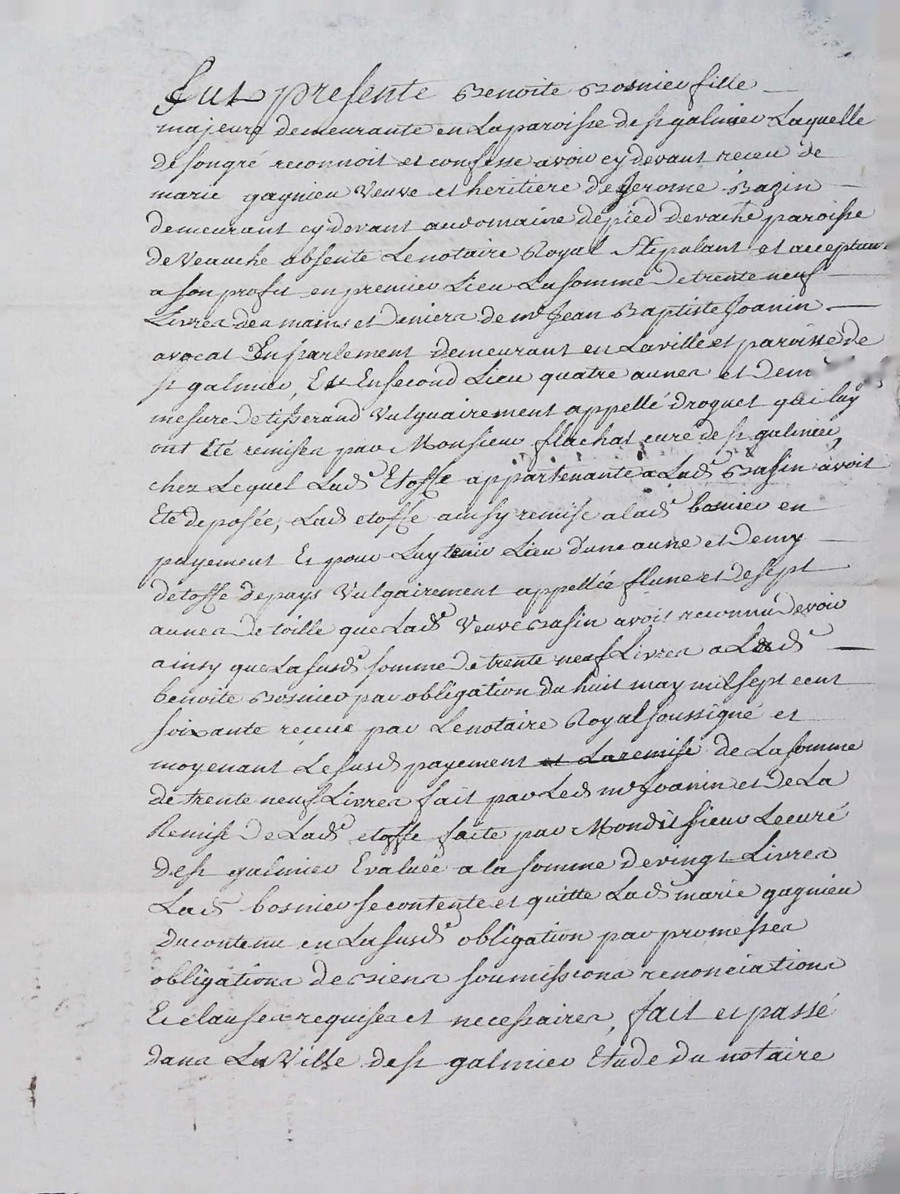 fut presente Benoite Bosnieu fille
majeure demeurante en La paroisse de st galmier Laquelle
de son gré reconnoit et confesse avoir cy devant receu de
marie gagnieu Veuve et heritiere de Jerome Bazin
demeurant cy devant au domaine de pied de vache paroisse
de Veauche absente Le notaire Royal Stipulant et acceptant
a son profit en premier Lieu La somme de trente neuf
Livres des mains et deniers de mr Jean Baptiste Joanin
avocat En parlement demeurant en La ville et paroisse de
st galmier, Et En second Lieu quatre aunes et demi
mesure de tisserand Vulguairement appellé droguet qui luy
ont Eté remises par Monsieur flachat curé de st galmier,
chez Lequel Lade Etoffe appartenante a Lade Basin avoit
Eté deposée, Lade etoffe ainsy remise a lade bosnieu en
payement Et pour Luy tenir Lieu d'une aune et demy
d'etoffe de pays Vulgairement appellée flune et de sept
aunes de toille que Lade Veuve Basin avoit reconnu devoir
ainsy que La susde somme de trente neuf Livres a Lade
benoite Bosnieu par obligation du huit may mil sept cent
soixante reçue par Le notaire Royal soussigné et
moyenant Le susd payement et La remise de La somme
de trente neuf Livres fait par Led mr Joanin et de La
Remise de Lade etoffe faite par Mondit sieur Le curé
de st galmier Evaluée a la somme de vingt Livres
Lade bosnieu se contente et quitte Lade marie gagnieu
du contenu en La susde obligation par promesses
obligations de biens soumissions renonciations
Et clauses requises et necessaires, fait et passé
dans La Ville de st galmier Etude du notaire